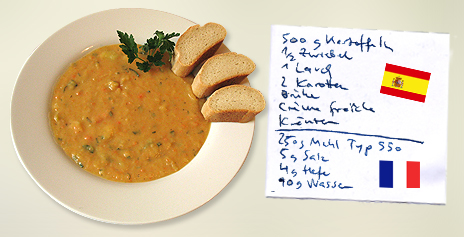 500 g Kartoffeln
1/2 Zwiebel
1 Lauch
2 Karotten
Brühe
Crème fraîche
Kräuter
250g Mehl Typ 550
5g Salz
4g Hefe
190g Wasser